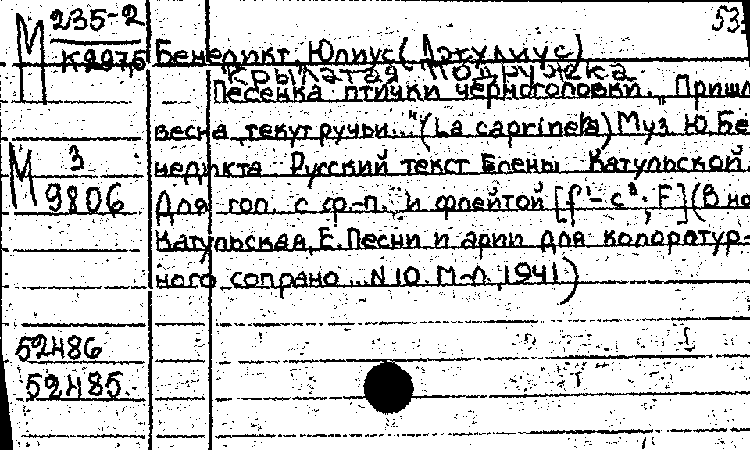 М 235-2 53
К2976 Бенедикт, Юлиус (Джулиус)
"Крылатая подружка
Песенка птички черноголовки. "Пришл
весна, текут ручьи..." (La caprinela) Муз. Ю. Бе
М 3 недикта Русский текст Елены Катульской.
9806 Для гол. с ф.-п. и флейтой [f¹-c³; F] (В но
Катульская, Е. Песни и арии для колоратур-
ного сопрано... N 10. М-Л., 1941)
52486
52485